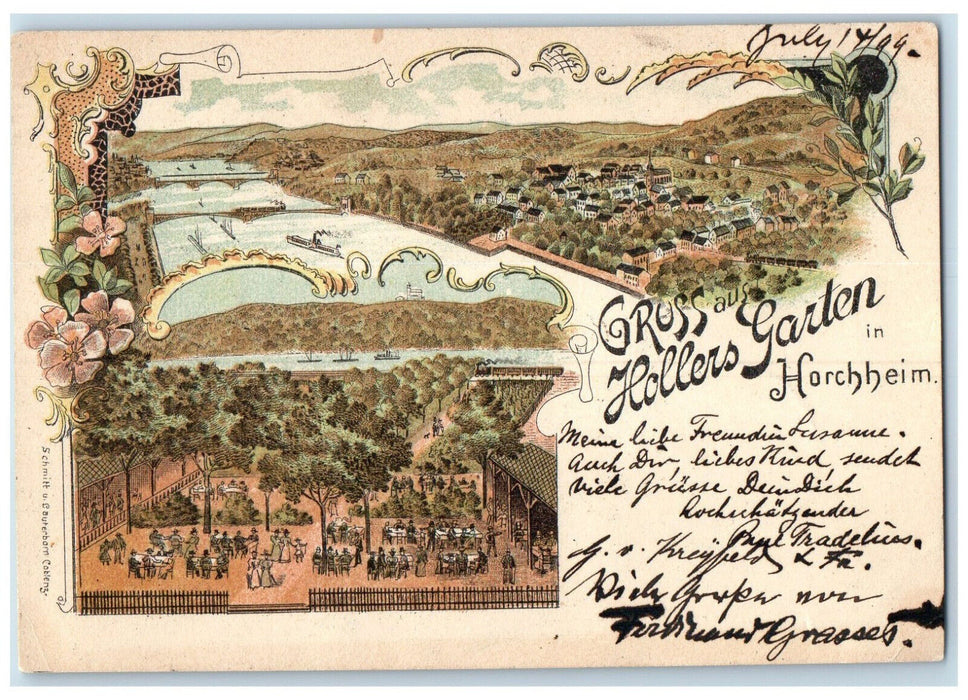 July 14/99.
GRUSS aus
Hollers Garten
in
Horchheim.
Meine liebe Freundin Susanne.
Auch Dir, liebes Kind, sendet
viele Grüsse Dein Dich
hochschätzender
Tradelius.
G. v. Kreyfeld & Fr.
Viele Grüße von
Ferdinand Grasses.
Schmitt u. Lauterborn Coblenz.